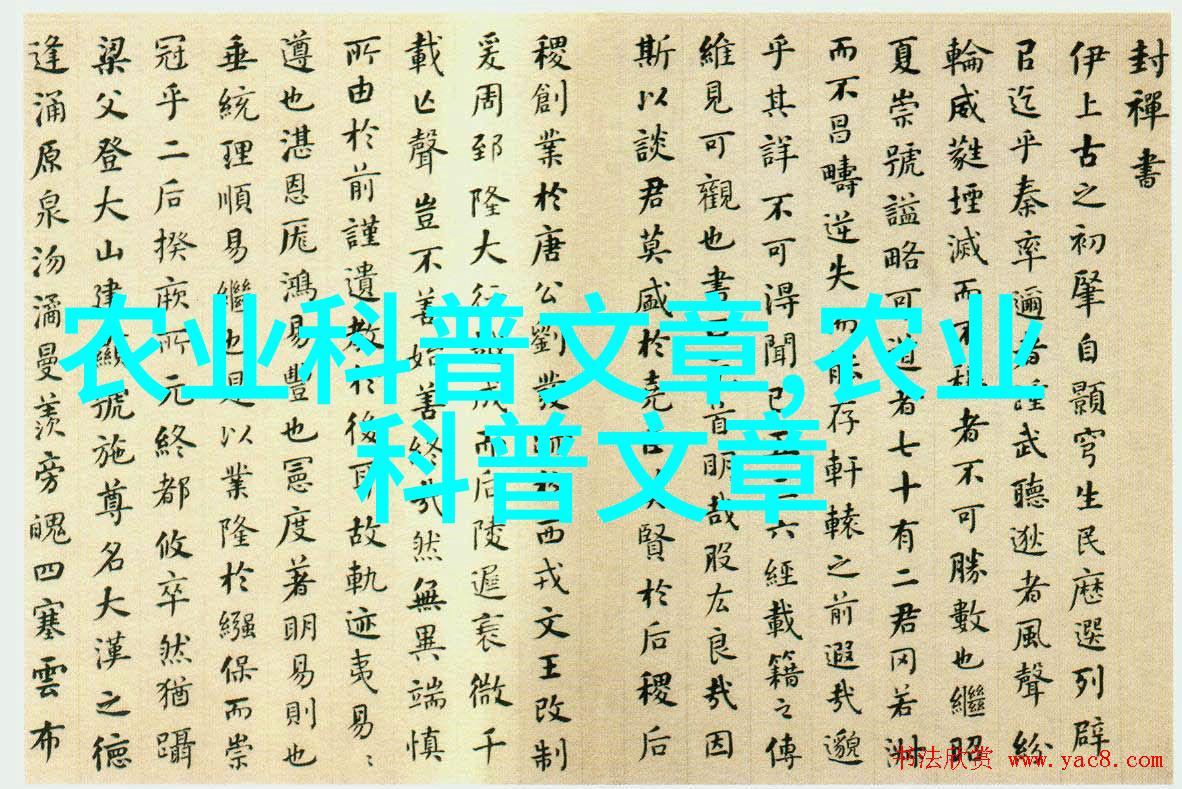 封禪書
伊上古之初肇自顥穹生民歷選列辟
㠯迄乎秦率邇者踵武聽逖者風聲紛
輪威蕤堙滅而不稱者不可勝數也繼昭
夏崇號謚略可道者七十有二君罔若淑
而不昌疇逆失而能存軒轅之前遐哉邈
乎其詳不可得聞已六經載籍之傳
維見可觀也書首明哉股厷良哉因
斯以談君莫盛於堯臣賢於后稷后
稷創業於唐公劉發於西戎文王改制
爰周郅隆大行成而后陵遲衰微千
載亡聲豈不善始善終哉然無異端慎
所由於前謹遺教於後耳故軌迹夷易〻
遵也湛恩厖鴻易豐也憲度著明易則也
垂統理順易繼也是以業隆於繈保而崇
冠乎二后揆厥所元終都攸卒然猶躡
梁父登大山建顯號施尊名大漢之德
逢涌原泉沕潏曼羨旁魄四塞雲布
农业科普文章,农业
科普文章
书法欣赏 www.yac8.com